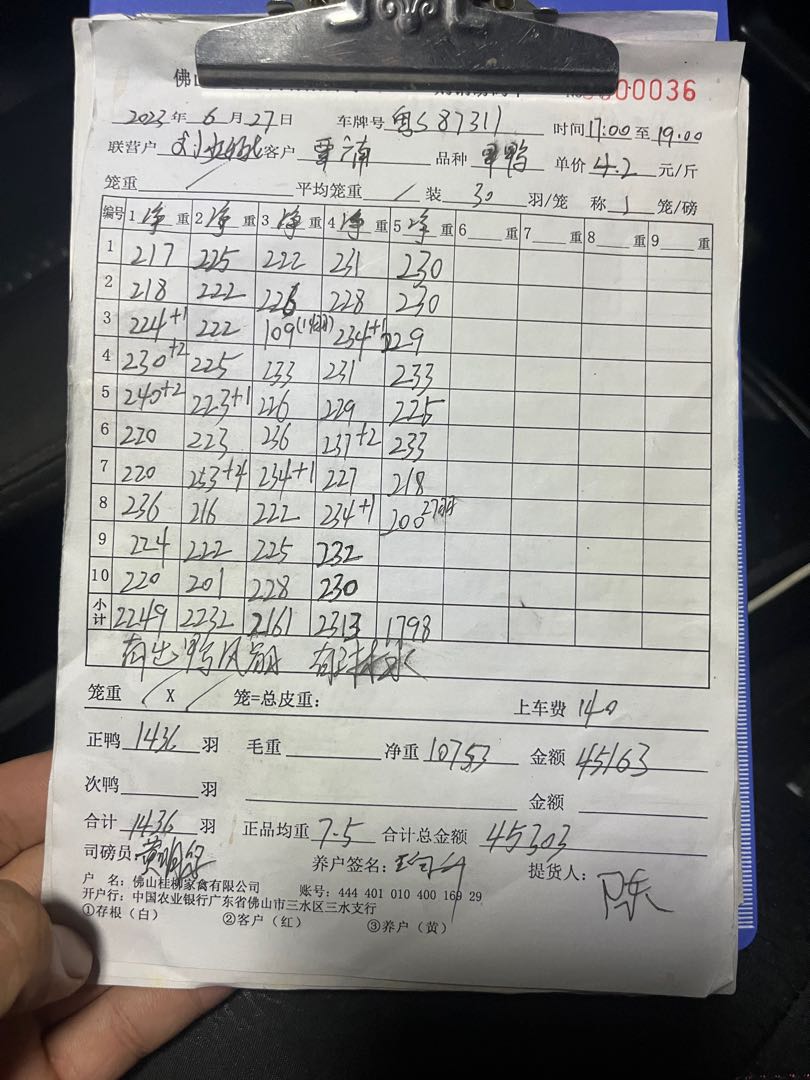 佛山
0000036
2023年6月27日 车牌号 粤S87311 时间17:00至19:00
联营户 客户 覃六南 品种 鸭 单价4.2元/斤
笼重 / 平均笼重 / 装 30 羽/笼 称 1 笼/磅
编号 1净重 2净重 3净重 4净重 5净重 6重 7重 8重 9重
1 217 225 222 231 230
2 218 222 226 228 230
3 224+1 222 109(14羽) 234+1 229
4 230+2 225 233 231 233
5 240+2 223+1 226 229 225
6 220 223 236 237+2 233
7 220 253+4 234+1 227 218
8 236 216 222 234+1 200 27羽
9 224 222 225 232
10 220 201 228 230
小计 2249 2232 2161 2313 1798
笼重 / X / 笼=总皮重: 上车费 140
正鸭 1436 羽 毛重 净重 10753 金额 45163
次鸭 羽 金额
合计 1436 羽 正品均重 7.5 合计总金额 45303
司磅员 养户签名: 提货人: 陈
户 名:佛山桂柳家禽有限公司 账号:444 401 010 400 169 29
开户行:中国农业银行广东省佛山市三水区三水支行
①存根(白) ②客户(红) ③养户(黄)